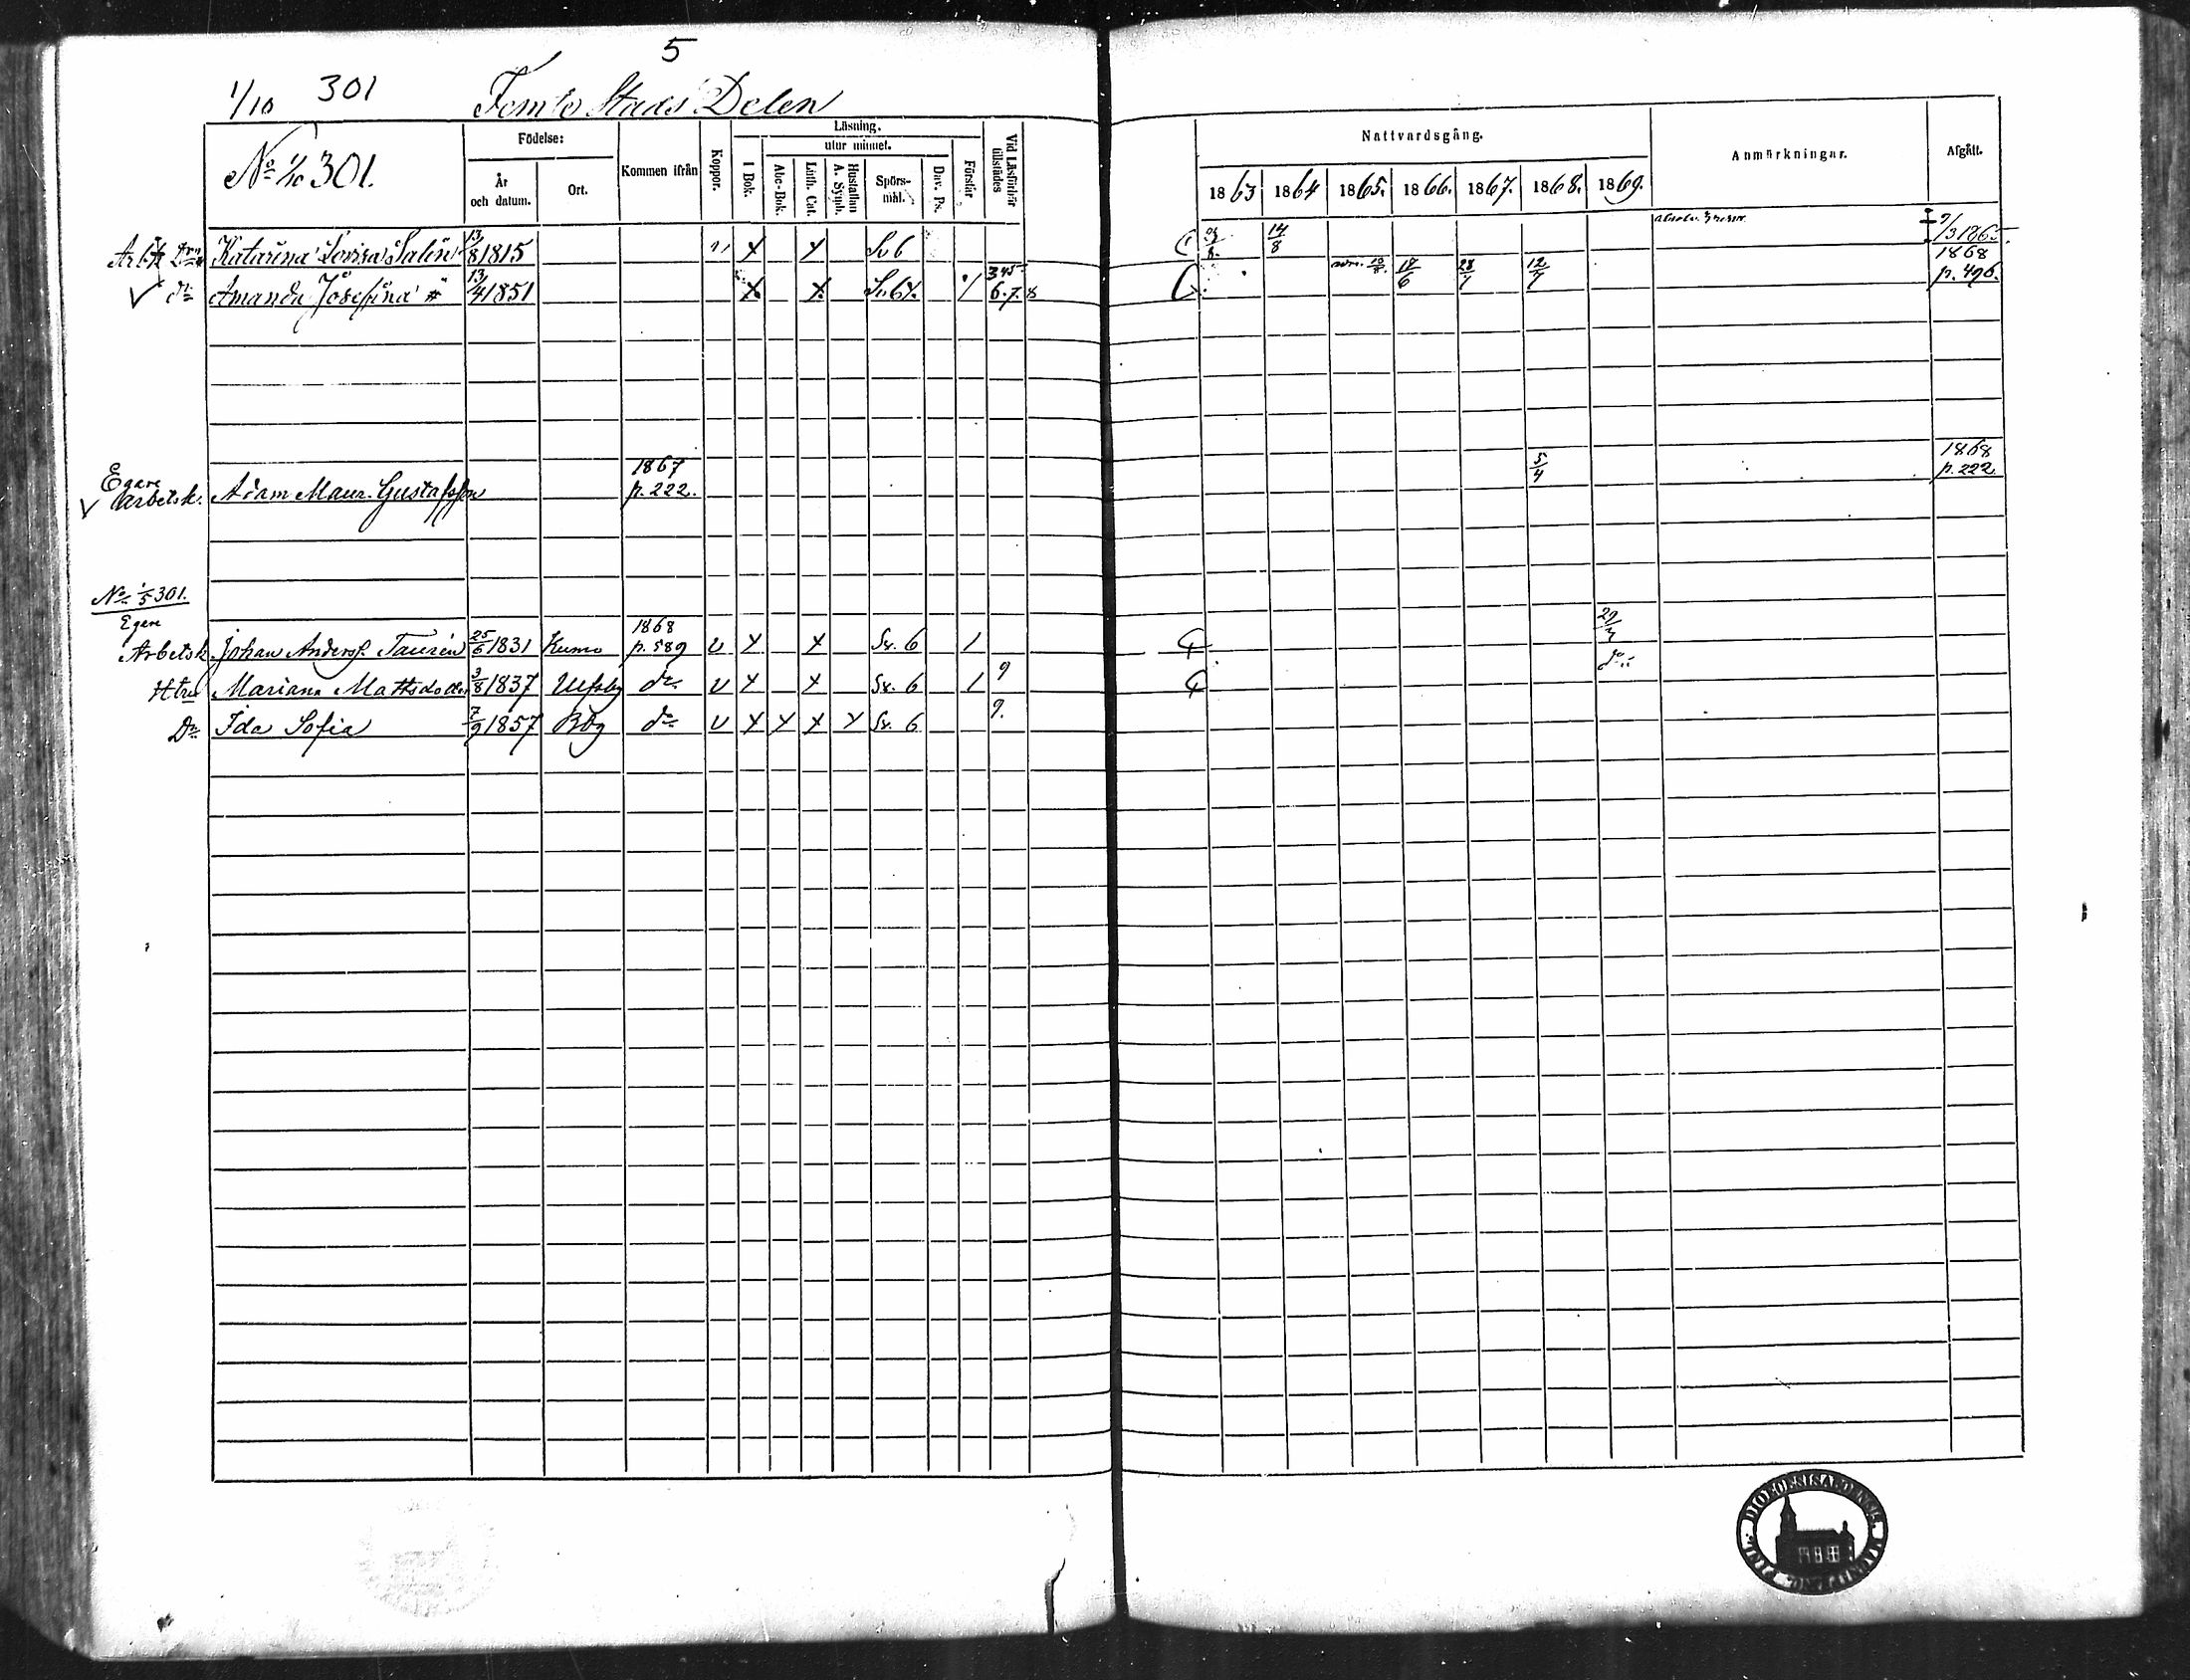 5
1/10 301 Femte Stads Delen
No 1/10 301.
Födelse:
År och datum.
Ort.
Kommen ifrån
Koppor.
Läsning.
I Bok.
utur minnet.
Abc-Bok.
Luth. Cat.
Hustaflan A. Symb.
Spörs-mål.
Dav. Ps.
Förstår
Vid Läsförhör tillstädes
Nattvardsgång.
1863 1864 1865. 1866. 1867. 1868. 1869.
Anmärkningar.
Afgått.
Katarina Lovisa Salin 13/8 1815 x x Sv 6 14/8 1865
Amanda Josefina 13/4 1851 x x Sv. 6 345 6.7.8 18/6 12/7 1868 p. 496.
Egare
Arbetsk. Adam Maur. Gustafsson 1867 p. 222. 5/4 1868 p. 222
No 1/5 301.
Egare
Arbetsk Johan Anderss. Taurén 25/6 1831 Kumo 1868 p. 589 v x x Sv. 6 1
Htru Mariana Mattsdotter 3/8 1837 Ulfsby do v x x Sv. 6 1 9 do
Dr Ida Sofia 7/9 1857 Bbg do v x x x x Sv. 6 9.